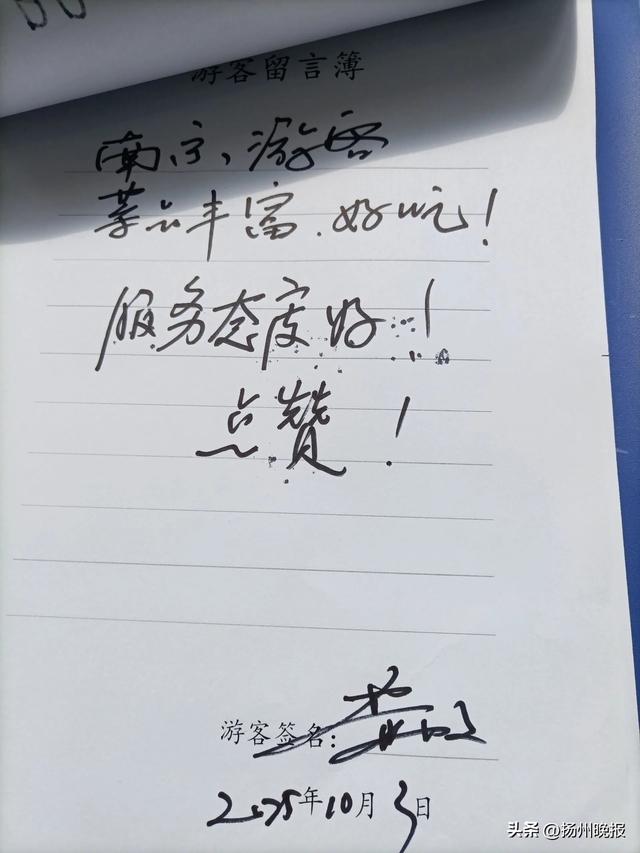 游客留言簿
南京游客
菜品丰富、好吃！
服务态度好！
点赞！
游客签名：
2025年10月3日
头条 @扬州晚报